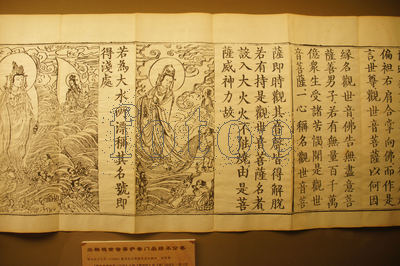 偏袒右肩合掌向佛而作是
言世尊觀世音菩薩以何因
緣名觀世音佛告無盡意菩
薩善男子若有無量百千萬
億衆生受諸苦惱聞是觀世
音菩薩一心稱名觀世音菩
薩即時觀其音聲皆得解脫
若有持是觀世音菩薩名者
設入大火火不能燒由是菩
薩威神力故
若為大水所漂稱其名號即
得淺處